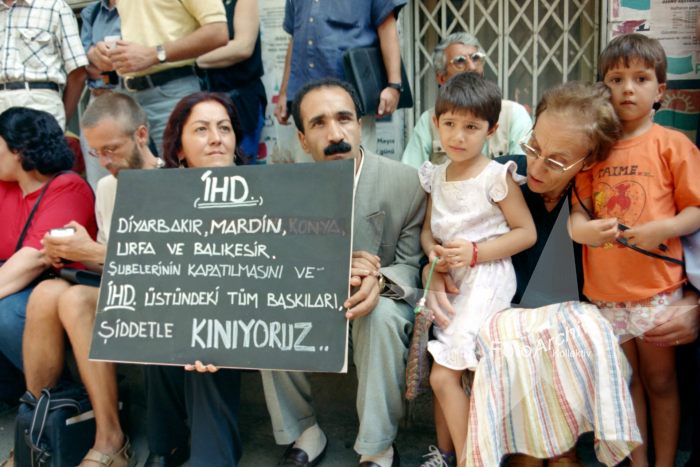 İHD.
DİYARBAKIR, MARDİN, KONYA,
URFA VE BALIKESİR.
ŞUBELERİNİN KAPATILMASINI VE-
İHD. ÜSTÜNDEKİ TÜM BASKILARI,
ŞİDDETLE KINIYORUZ..
J'AIME..
FotoArchiv
Kollektiv